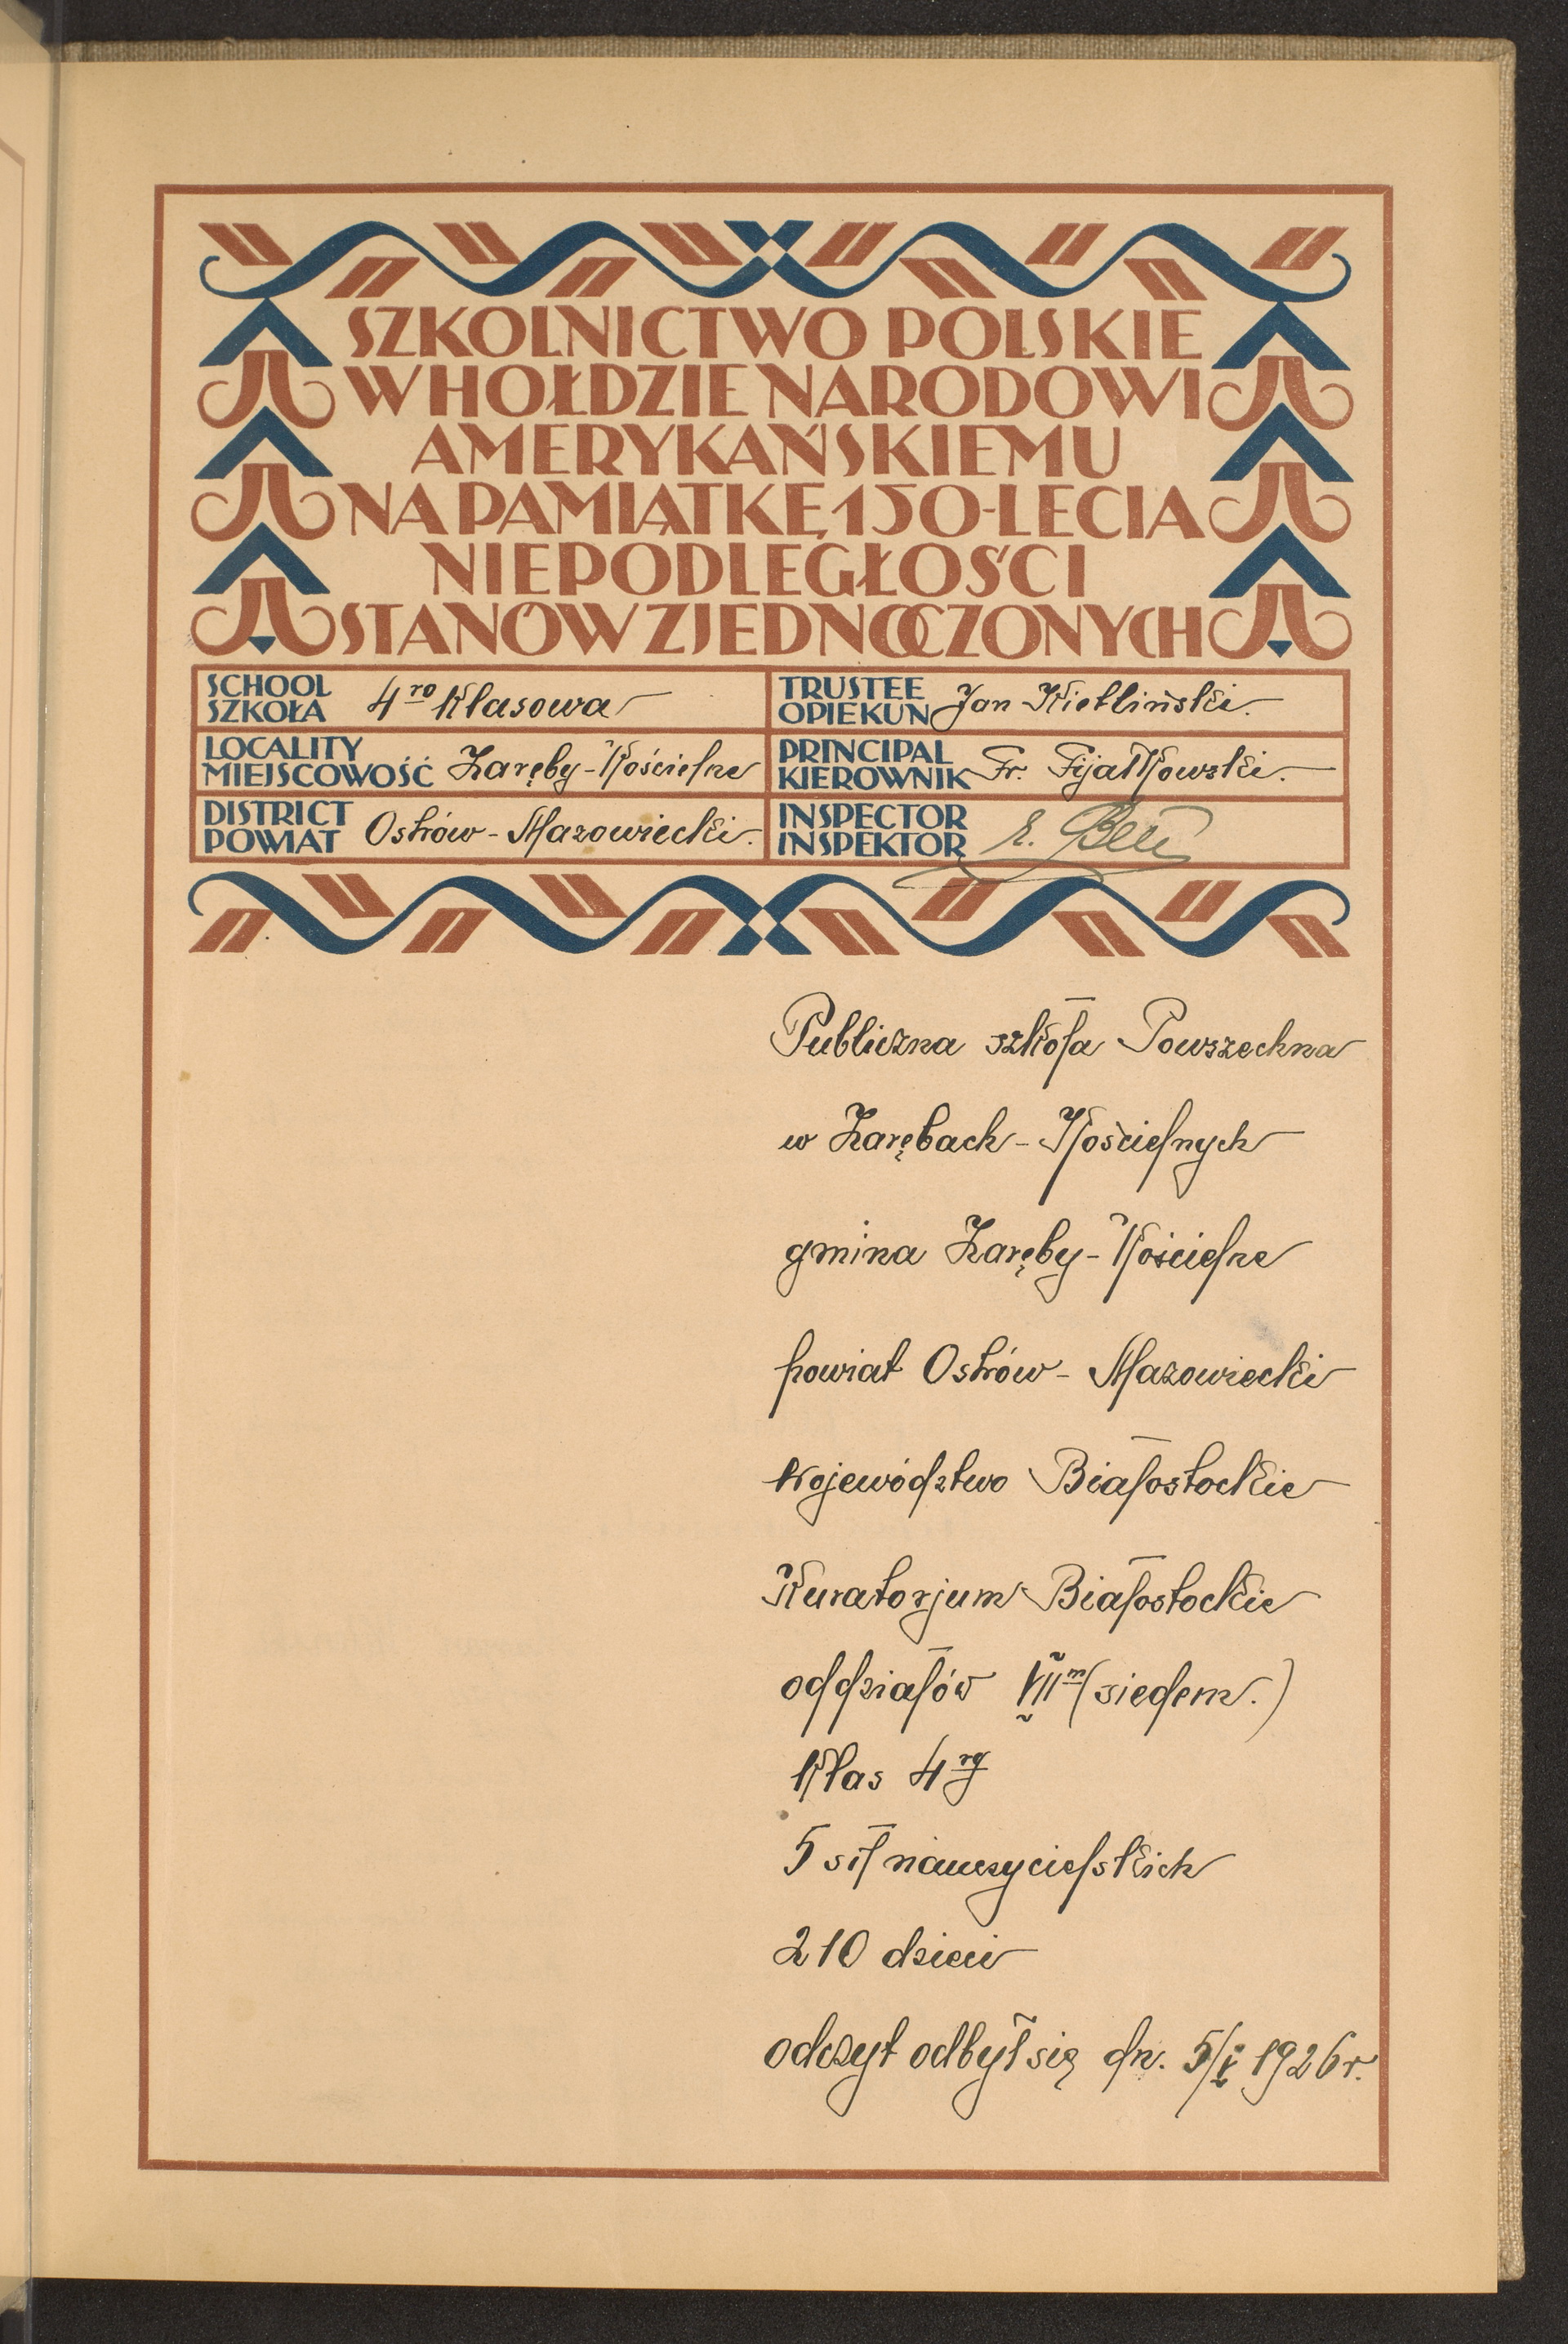 SZKOLNICTWO POLSKIE
W HOŁDZIE NARODOWI
AMERYKAŃSKIEMU
NA PAMIĄTKĘ 150-LECIA
NIEPODLEGŁOŚCI
STANÓW ZJEDNOCZONYCH
SCHOOL
SZKOŁA 4ro Klasowa
TRUSTEE
OPIEKUN Jan
LOCALITY
MIEJSCOWOŚĆ Zaręby-Kościelne
PRINCIPAL
KIEROWNIK Fr. Fijałkowski.
DISTRICT
POWIAT Ostrów-Mazowiecki.
INSPECTOR
INSPEKTOR
Publiczna szkoła Powszechna
w Zarębach-Kościelnych
gmina Zaręby-Kościelne
powiat Ostrów-Mazowiecki
Województwo Białostockie
Kuratorjum Białostockie
oddziałów VIIm (siedem.)
Klas 4ry
5 sił nauczycielskich
210 dzieci
odczyt odbył się dn. 5/V 1926 r.